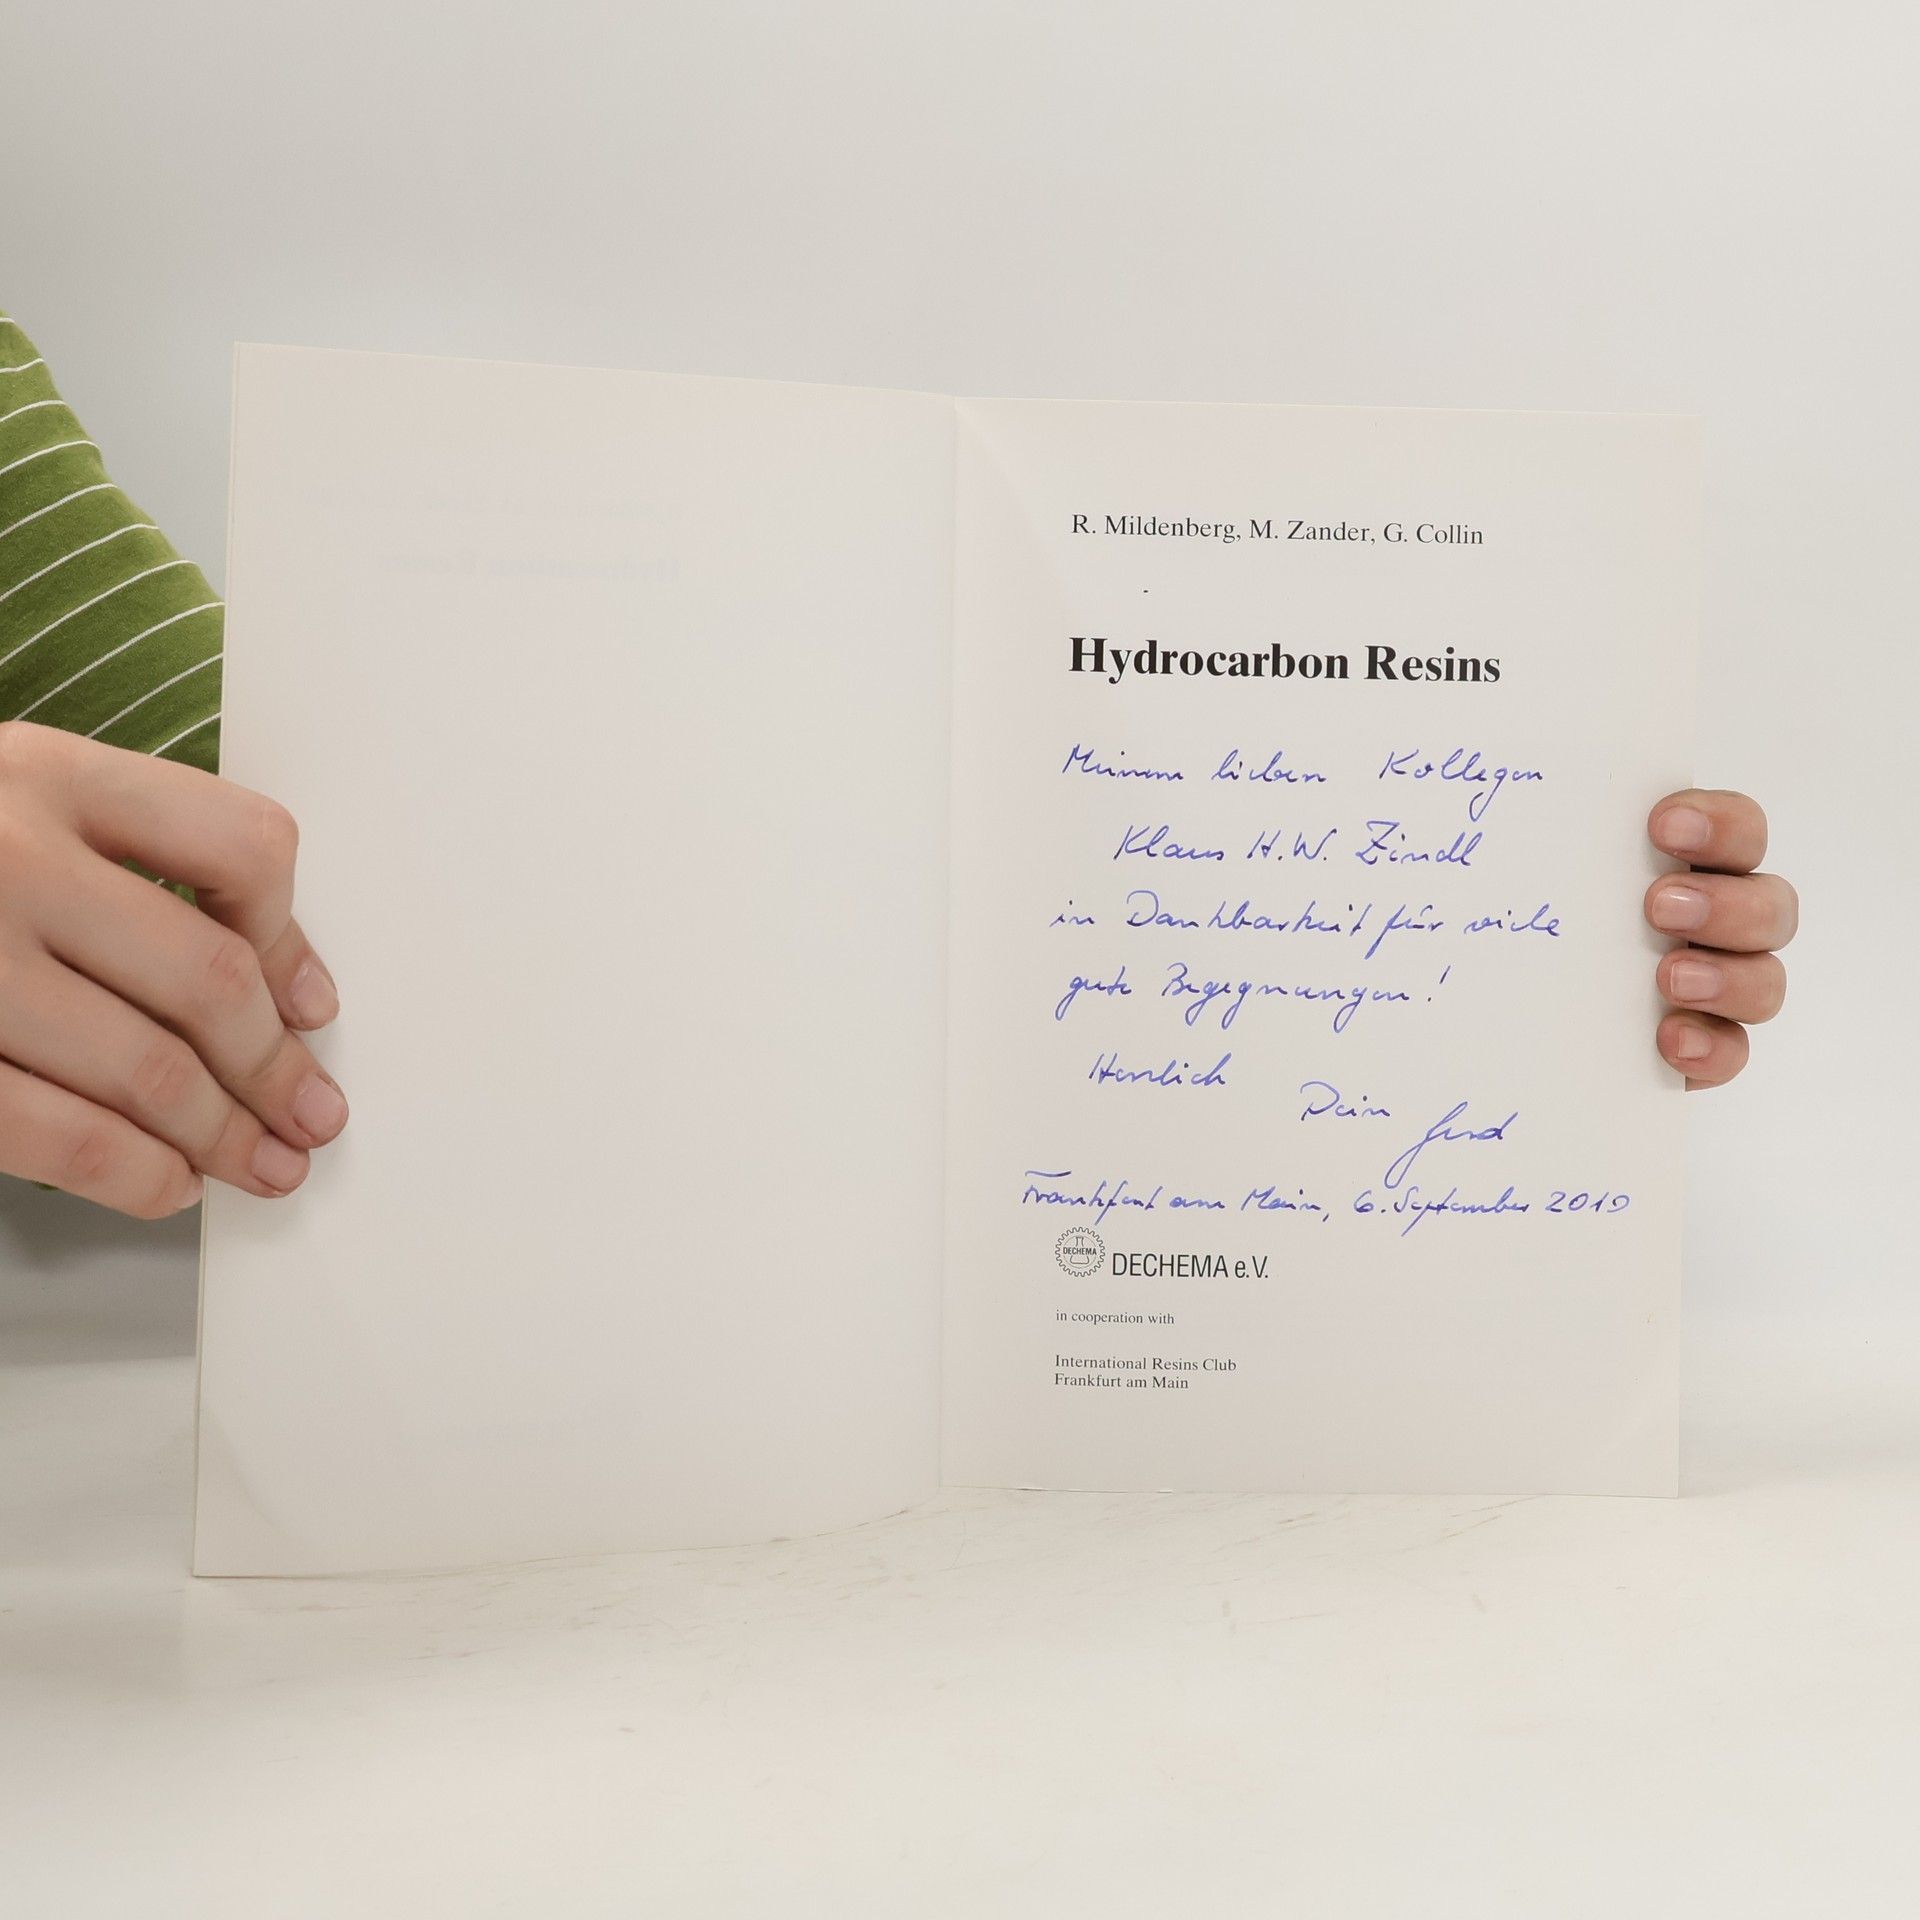 R. Mildenberg, M. Zander, G. Collin
Hydrocarbon Resins
Meinem lieben Kollegen
Klaus H.W. Zindl
in Dankbarkeit für viele
gute Begegnungen!
Herzlich
Dein Gerd
Frankfurt am Main, 6. September 2010
DECHEMA
DECHEMA e.V.
in cooperation with
International Resins Club
Frankfurt am Main